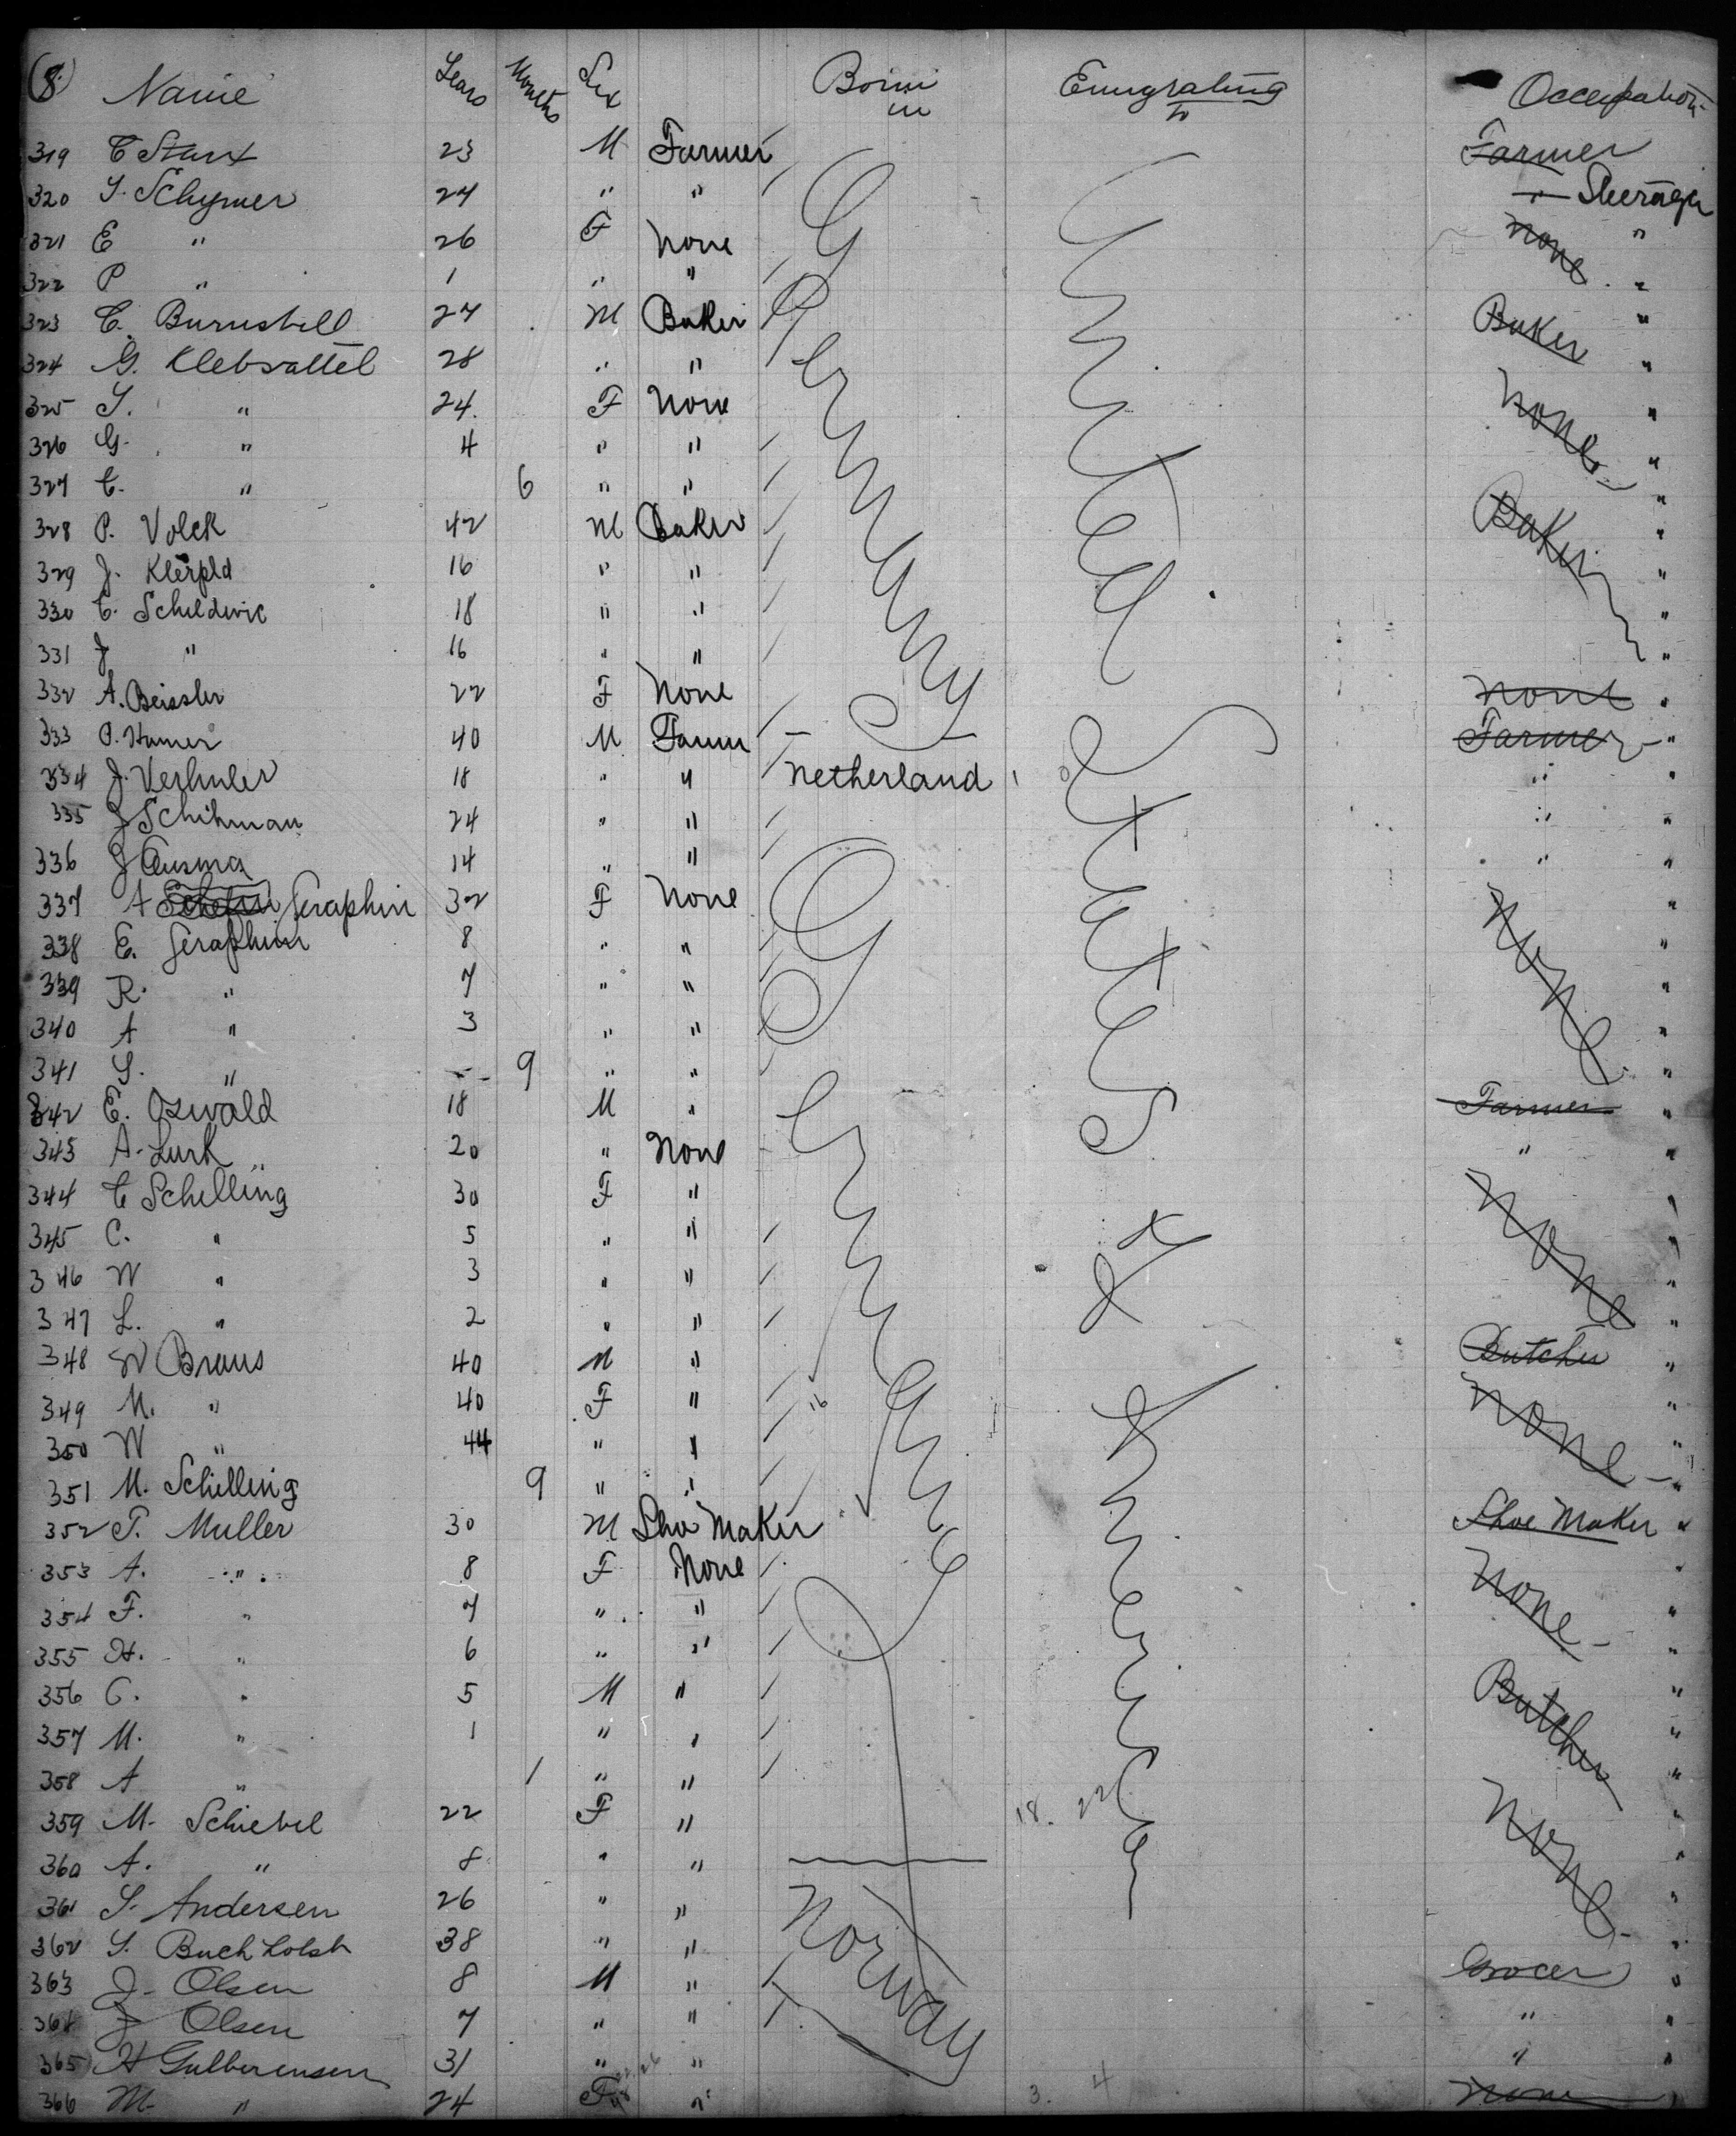 (8.) Name Years Months Sex Born in Emigrating to Occupation
319 C Stark 23 M Farmer Farmer
320 S. Schymer 24 " " " Steerage
321 E " 26 F None None "
322 P " 1 " " "
323 C. Burnstill 27 M Baker Baker "
324 G. Klebsattel 28 " " "
325 S. " 24. F None None "
326 G. " 4 " " "
327 C. " 6 " " "
328 P. Volck 42 M Baker Baker "
329 J. Klerpld 16 " " "
330 C. Scheldwic 18 " " "
331 J " 16 " " "
Germany
United
332 A. Beissler 22 F None None "
333 P. Hamer 40 M Farm Farmer "
334 J. Verhuler 18 " " Netherland " "
335 J Schihman 24 " " " "
336 J Ausma 14 " " " "
337 A Seraphin 32 F None None "
338 E. Seraphin 8 " " "
339 R. " 7 " " "
340 A " 3 " " "
341 S. " 9 " " "
342 E. Oswald 18 M " Farmer "
343 A. Lurk 20 " None " "
States
344 C Schilling 30 F " None
345 C. " 5 " " "
346 W " 3 " " "
347 L. " 2 " " "
of
348 W Braus 40 M " Butcher "
349 M. " 40 F " None "
350 W " 44 " " "
351 M. Schilling 9 " " "
352 T. Muller 30 M Shoe Maker Shoe Maker "
Germany
353 A. " 8 F None None "
354 F. " 7 " " "
355 H. " 6 " " "
356 C. " 5 M " Butcher "
357 M. " 1 " " "
358 A " 1 " " "
359 M. Schiebel 22 F " 18. 22 None
360 A. " 8 " " "
America
361 S. Andersen 26 " " "
362 S. Buchholsh 38 " " "
363 J. Olsen 8 M " Grocer "
364 J Olsen 7 " " " "
Norway
365 H Gulberensen 31 " " " "
366 M. " 24 F " 3. 4 None